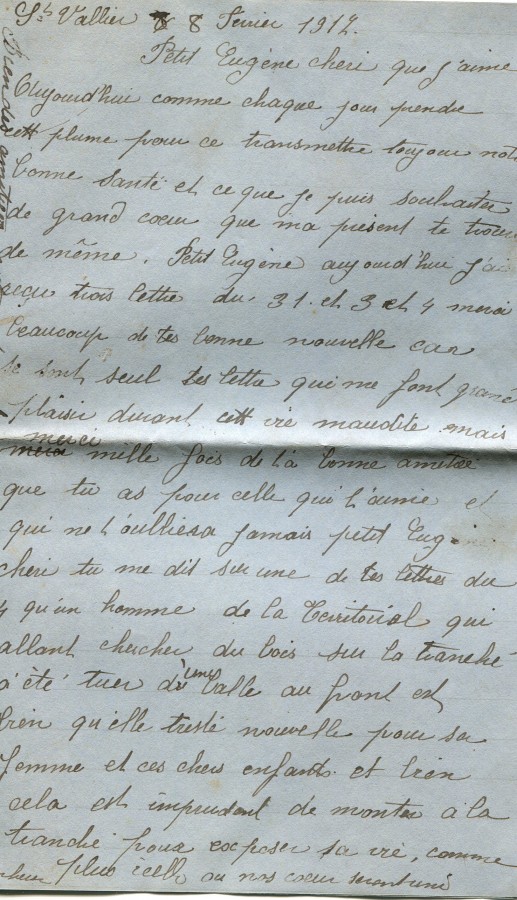 St Vallier 8 Fevrier 1917.
Petit Eugène cheri que j'aime
Aujourd'hui comme chaque jour prendre
cett plume pour ce transmettre toujour notre
bonne santé et ce que je puis souhaiter
de grand coeur que ma présent te trouve
de même. Petit Eugène aujourd'hui j'ai
reçu trois lettre du 31. et 3 et 4 merci
beaucoup de tes bonne nouvelle car
se sont seul tes lettre qui me font grand
plaisir durant cett vie maudite mais
merci mille fois de ta bonne
que tu as pour celle qui t'aime et
qui ne t'oulliera jamais petit Eugène
cheri tu me dit sur une de tes lettres du
4 qu'un homme de la Territorial qui
allant chercher du bois sur la tranché
a été tuer d'une balle au front est
bien qu'elle tresté nouvelle pour sa
femme et ces chers enfants et bien
cela est imprudent de monter à la
tranché pour exposer sa vie, comme
plus celle ou nos coeur seront uni